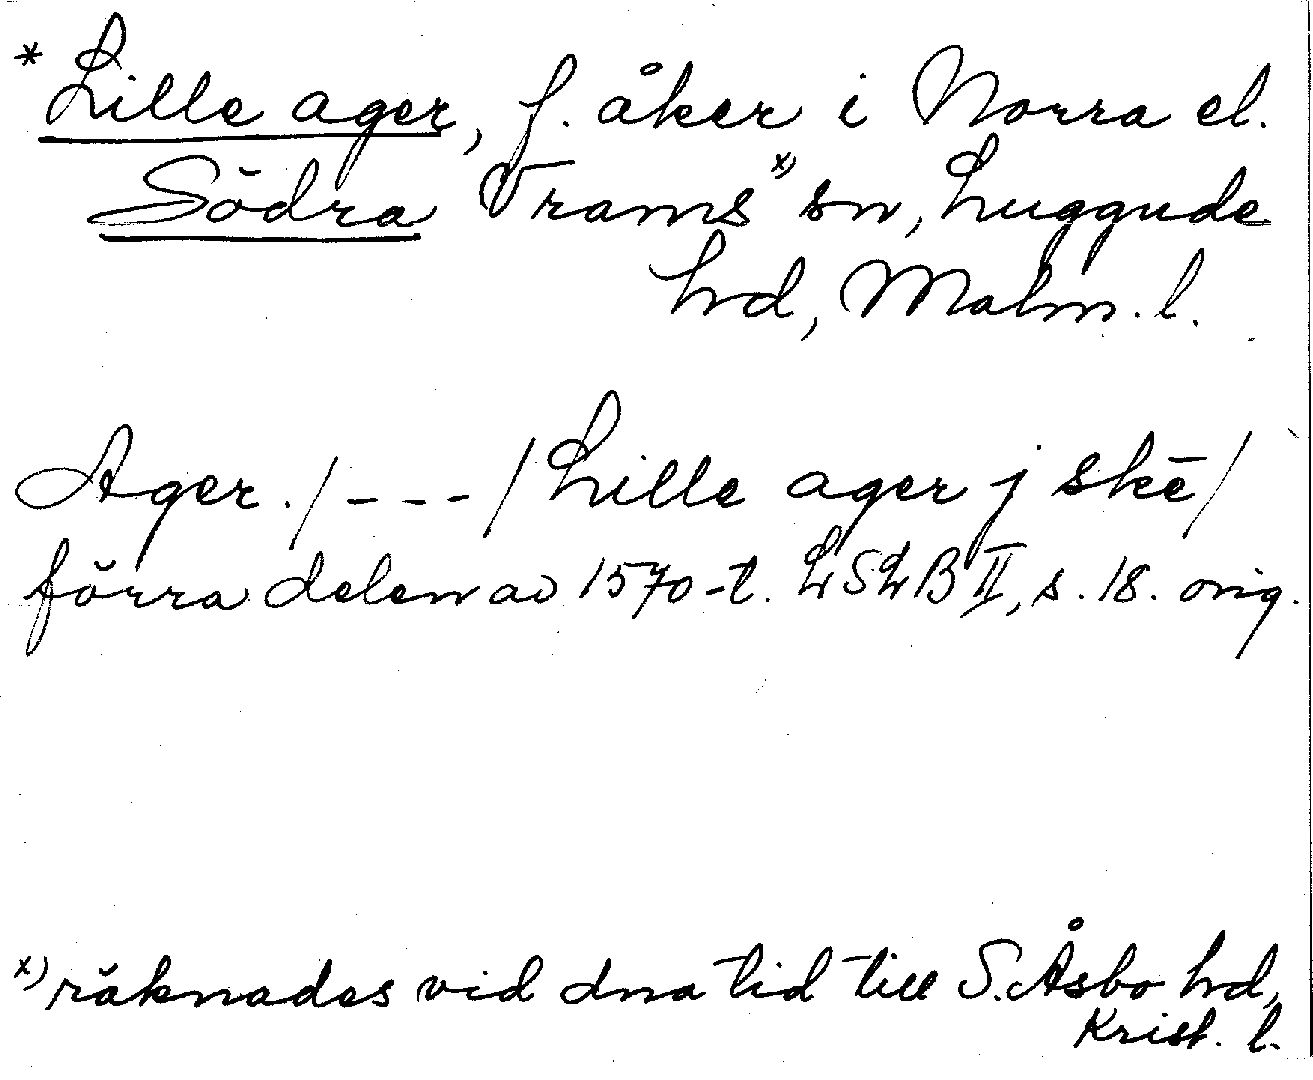 * Lille ager, f. åker i Norra el.
Södra Vrams x) sn, Luggude
hd, Malm. l.
Ager. /---/ Lille ager j skē/
förra delen av 1570-t. LSLB II, s. 18. orig.
x) räknades vid dna tid till S. Åsbo hd,
Krist. l.